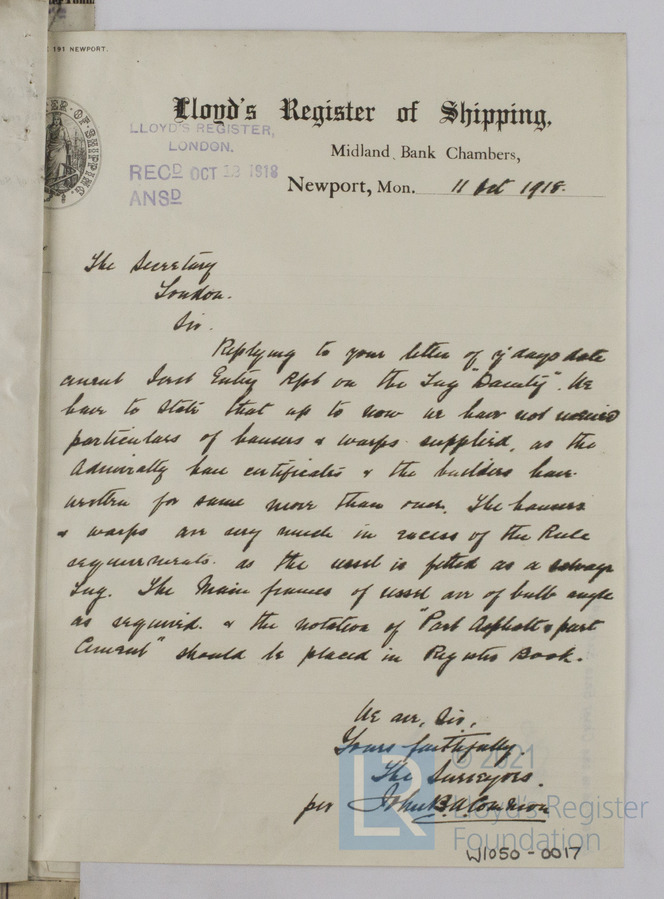 191 NEWPORT.
Lloyd's Register of Shipping,
LLOYD'S REGISTER,
LONDON.
REC^D OCT 13 1918
ANS^D
Midland Bank Chambers,
Newport, Mon. 11 Oct 1918.
The Secretary
London.
Sir.
Replying to your letter of days date
anent First Entry Rpt on the Tug "Dainty". We
have to state that up to now we have not received
particulars of hawsers & warps supplied, as the
Admiralty have certificates & the builders have
written for same more than once. The hawsers
& warps are very much in excess of the Rule
requirements. as the vessel is fitted as a salvage
Tug. The Main frames of vessel are of bulb angle
as required. & the notation of "Part Asphalt & part
Cement" should be placed in Register Book.
We are, Sir,
Yours faithfully.
The Surveyors.
per John
© 2021
LR
Lloyd's Register
Foundation
W1050-0017